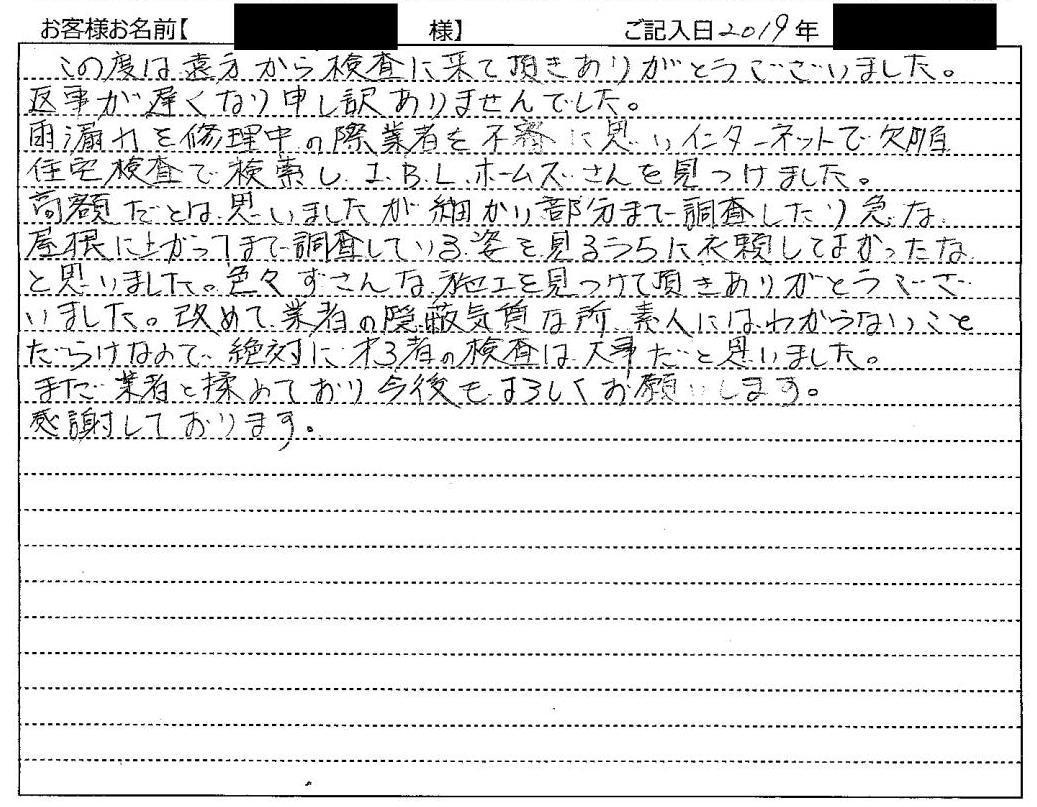 お客様お名前【 様】 ご記入日2019年
この度は遠方から検査に来て頂きありがとうございました。
返事が遅くなり申し訳ありませんでした。
雨漏れを修理中の際業者を不審に思いインターネットで欠陥
住宅検査で検索し、I.B.L.ホームズさんを見つけました。
高額だとは思いましたが細かい部分まで調査したり急な
屋根に上がってまで調査している姿を見るうちに依頼してよかったな
と思いました。色々ずさんな施工を見つけて頂きありがとうござ
いました。改めて業者の隠蔽気質な所、素人にはわからないこと
だらけなので、絶対に第3者の検査は大事だと思いました。
まだ業者と揉めており今後もよろしくお願いします。
感謝しております。